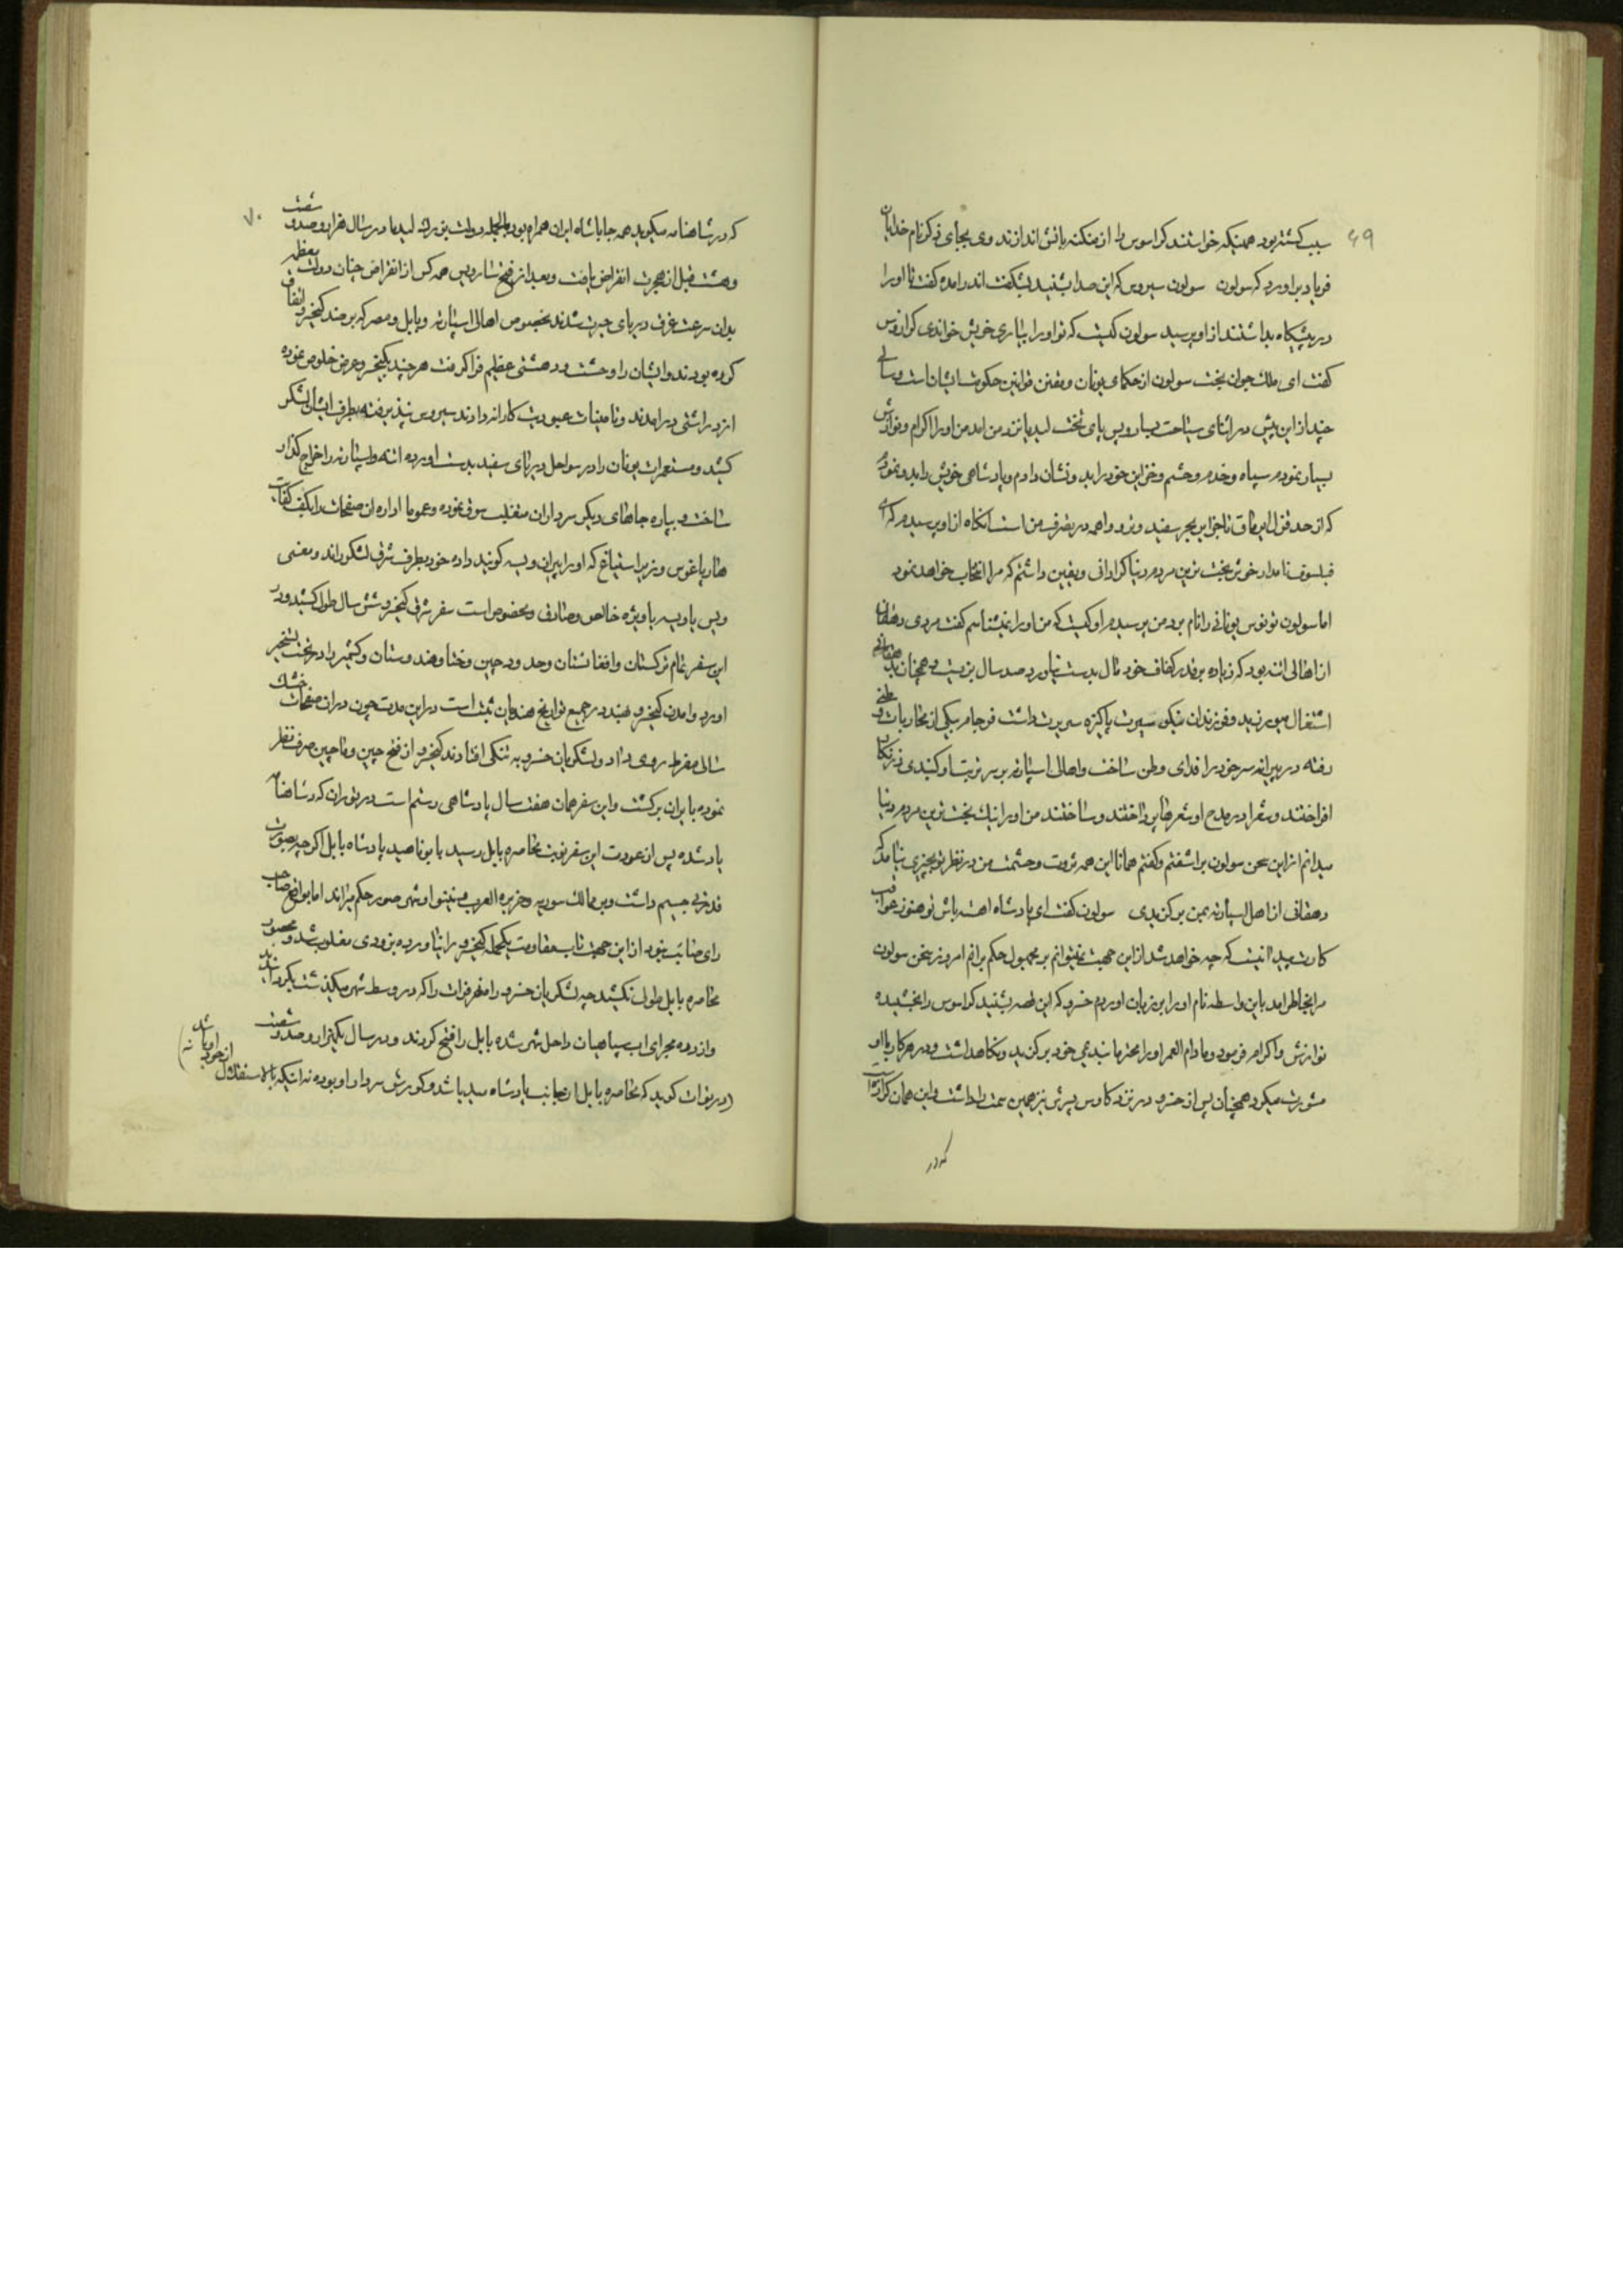 ۶۹
سبب کشته بود همینکه خواستند کراسوس را از منکنه باتش اندازند وی بجای ذکر نام خدایان
فریاد براورد که سولون سولون سیروس که این صدا بشنید بشکفت اندر امده گفت تا او را
در پیشگاه بداشتند از او پرسید سولون کیست که تو او را بیاری خویش خواندی کراسوس
گفت ای ملک جوان بخت سولون از حکمای یونان و مقنن قوانین حکومت ایشان است و سالی
چند از این پیش در اثنای سیاحت بسارویس پای تخت لیدیا نزد من امد من او را اکرام و نوازش
بسیار نمودم سپاه و خدم و حشم و خزاین خود را بدو نشان دادم و پادشاهی خویش را بدو نمودم
که از حد قزل ایرماق تا جزایر بحر سفید و نرود همه در تصرف من است انکاه از او پرسیدم که ای
فیلسوف نامدار خوش بخت ترین مردم دنیا کرا دانی و یقین داشتم که مرا انتخاب خواهد نمود
اما سولون تونوس یونانی را نام برد من پرسیدم او کیست که من او را نمیشناسم گفت مردی دهقان
از اهالی اتنه بود که زیاده بر قدر کفاف خود مال بدست نیاورد صد سال بزیست و همچنان بدهقانی
اشتغال میورزید و فرزندان نیکو سیرت پاکیزه سریرت داشت فرجام بیکی از محاربات وطنی
رفته در پیرانه سر خود را فدای وطن ساخت و اهالی اسپارته بر سر تربت او کنبدی بزرکان
افراختند و شعرا در مدح او شعرها پرداختند و ساختند من او را نیک بخت ترین مردم دنیا
میدانم از این سخن سولون براشفتم و گفتم همانا این همه ثروت و حشمت من در نظر تو بچیزی نیامد که
دهقانی از اهل اسپارته بمن برگزیدی سولون گفت ای پادشاه اهسته باش تو هنوز عواقب
کارت پیدا نیست که چه خواهد شد از این جهت نمیتوانم بر مجهول حکم برانم امروز سخن سولون
مرا بخاطر امد باین واسطه نام او را بر زبان اوردم خسرو که این قصه بشنید کراسوس را بخشیده
نوازش و اکرام فرمود و مادام العمر او را محترما بندیمی خود برگزید و نکاهداشت و در هر کار با او
مشورت میکرد همچنان پس از خسرو در نزد کاوس پسرش نیز همین سمت را داشت و این همان کرازه است
که در
۷۰
که در شاهنامه میکوید همه جا با شاه ایران همراه بود بالجمله دولت بزرک لیدیا در سال هزار و صد و شصت
و هشت قبل از هجرت انقراض یافت و بعد از فتح سارویس همه کس از انقراض چنان دولت معظمه
بدان سرعت غرق دریای حیرت شدند بخصوص اهالی اسپارته و بابل و مصر که بر ضد کیخسرو اتفاق
کرده بودند و ایشان را وحشت و دهشتی عظیم فرا گرفت هر چند بکیخسرو عرض خلوص نموده
از در اشتی درامدند و تامینات عبودیت کارانه دادند سیروس نپذیرفته بطرف ایشان لشکر
کشید و مستعمرات یونان را در سواحل دریای سفید بدست اورده اتنه و اسپارته را خراج گذار
ساخت و بپاره جاهای دیگر سرداران منقلب سوق نموده و عموما اداره ان صفحات را بکف کفایت
هارپاغوس وزیر استیاغ که او را پیران ویسه گویند داده خود بطرف شرق لشکر راند و معنی
ویس یا ویسه با ویژه خالص و صادق و مخصوص است سفر شرق کیخسرو شش سال طول کشید و در
این سفر تمام ترکستان و افغانستان و حدود چین و ختا و هندوستان و کشمیر را در تحت تسخیر
اورد و امدن کیخسرو بهند در جمیع تواریخ هندیان ثبت است در این مدت چون در ان صفحات خشک
سالی مفرط روی داد و لشکریان خسرو به تنگی افتادند کیخسرو از فتح چین و ماچین صرف نظر
نموده بایران برگشت و این سفر همان هفت سال پادشاهی رستم است در توران که در شاهنامه
یاد شده پس از عودت این سفر نوبت محاصره بابل رسید بابوناهید پادشاه بابل اگر چه بصورت
قدرتی جسیم داشت و بر ممالک سوریه و جزیرة العرب و نینوا و شهر صور حکم میراند اما بواقع صاحب
رای صائب نبود از این جهت تاب مقاومت یکحمله کیخسرو را نیاورده بزودی مغلوب شد و محصور
محاصره بابل طول نکشید چه لشکریان خسرو راه نهر فرات را که در وسط شهر میگذشت بگردانید
و از دره مجرای اب سپاهیان داخل شهر شده بابل را فتح کردند و در سال یکهزار و صد و شصت
(در تورات گوید که محاصره بابل از جانب پادشاه مید باشد و کورش سردار او بوده نه اینکه بالاستقلال از خود او باشد)